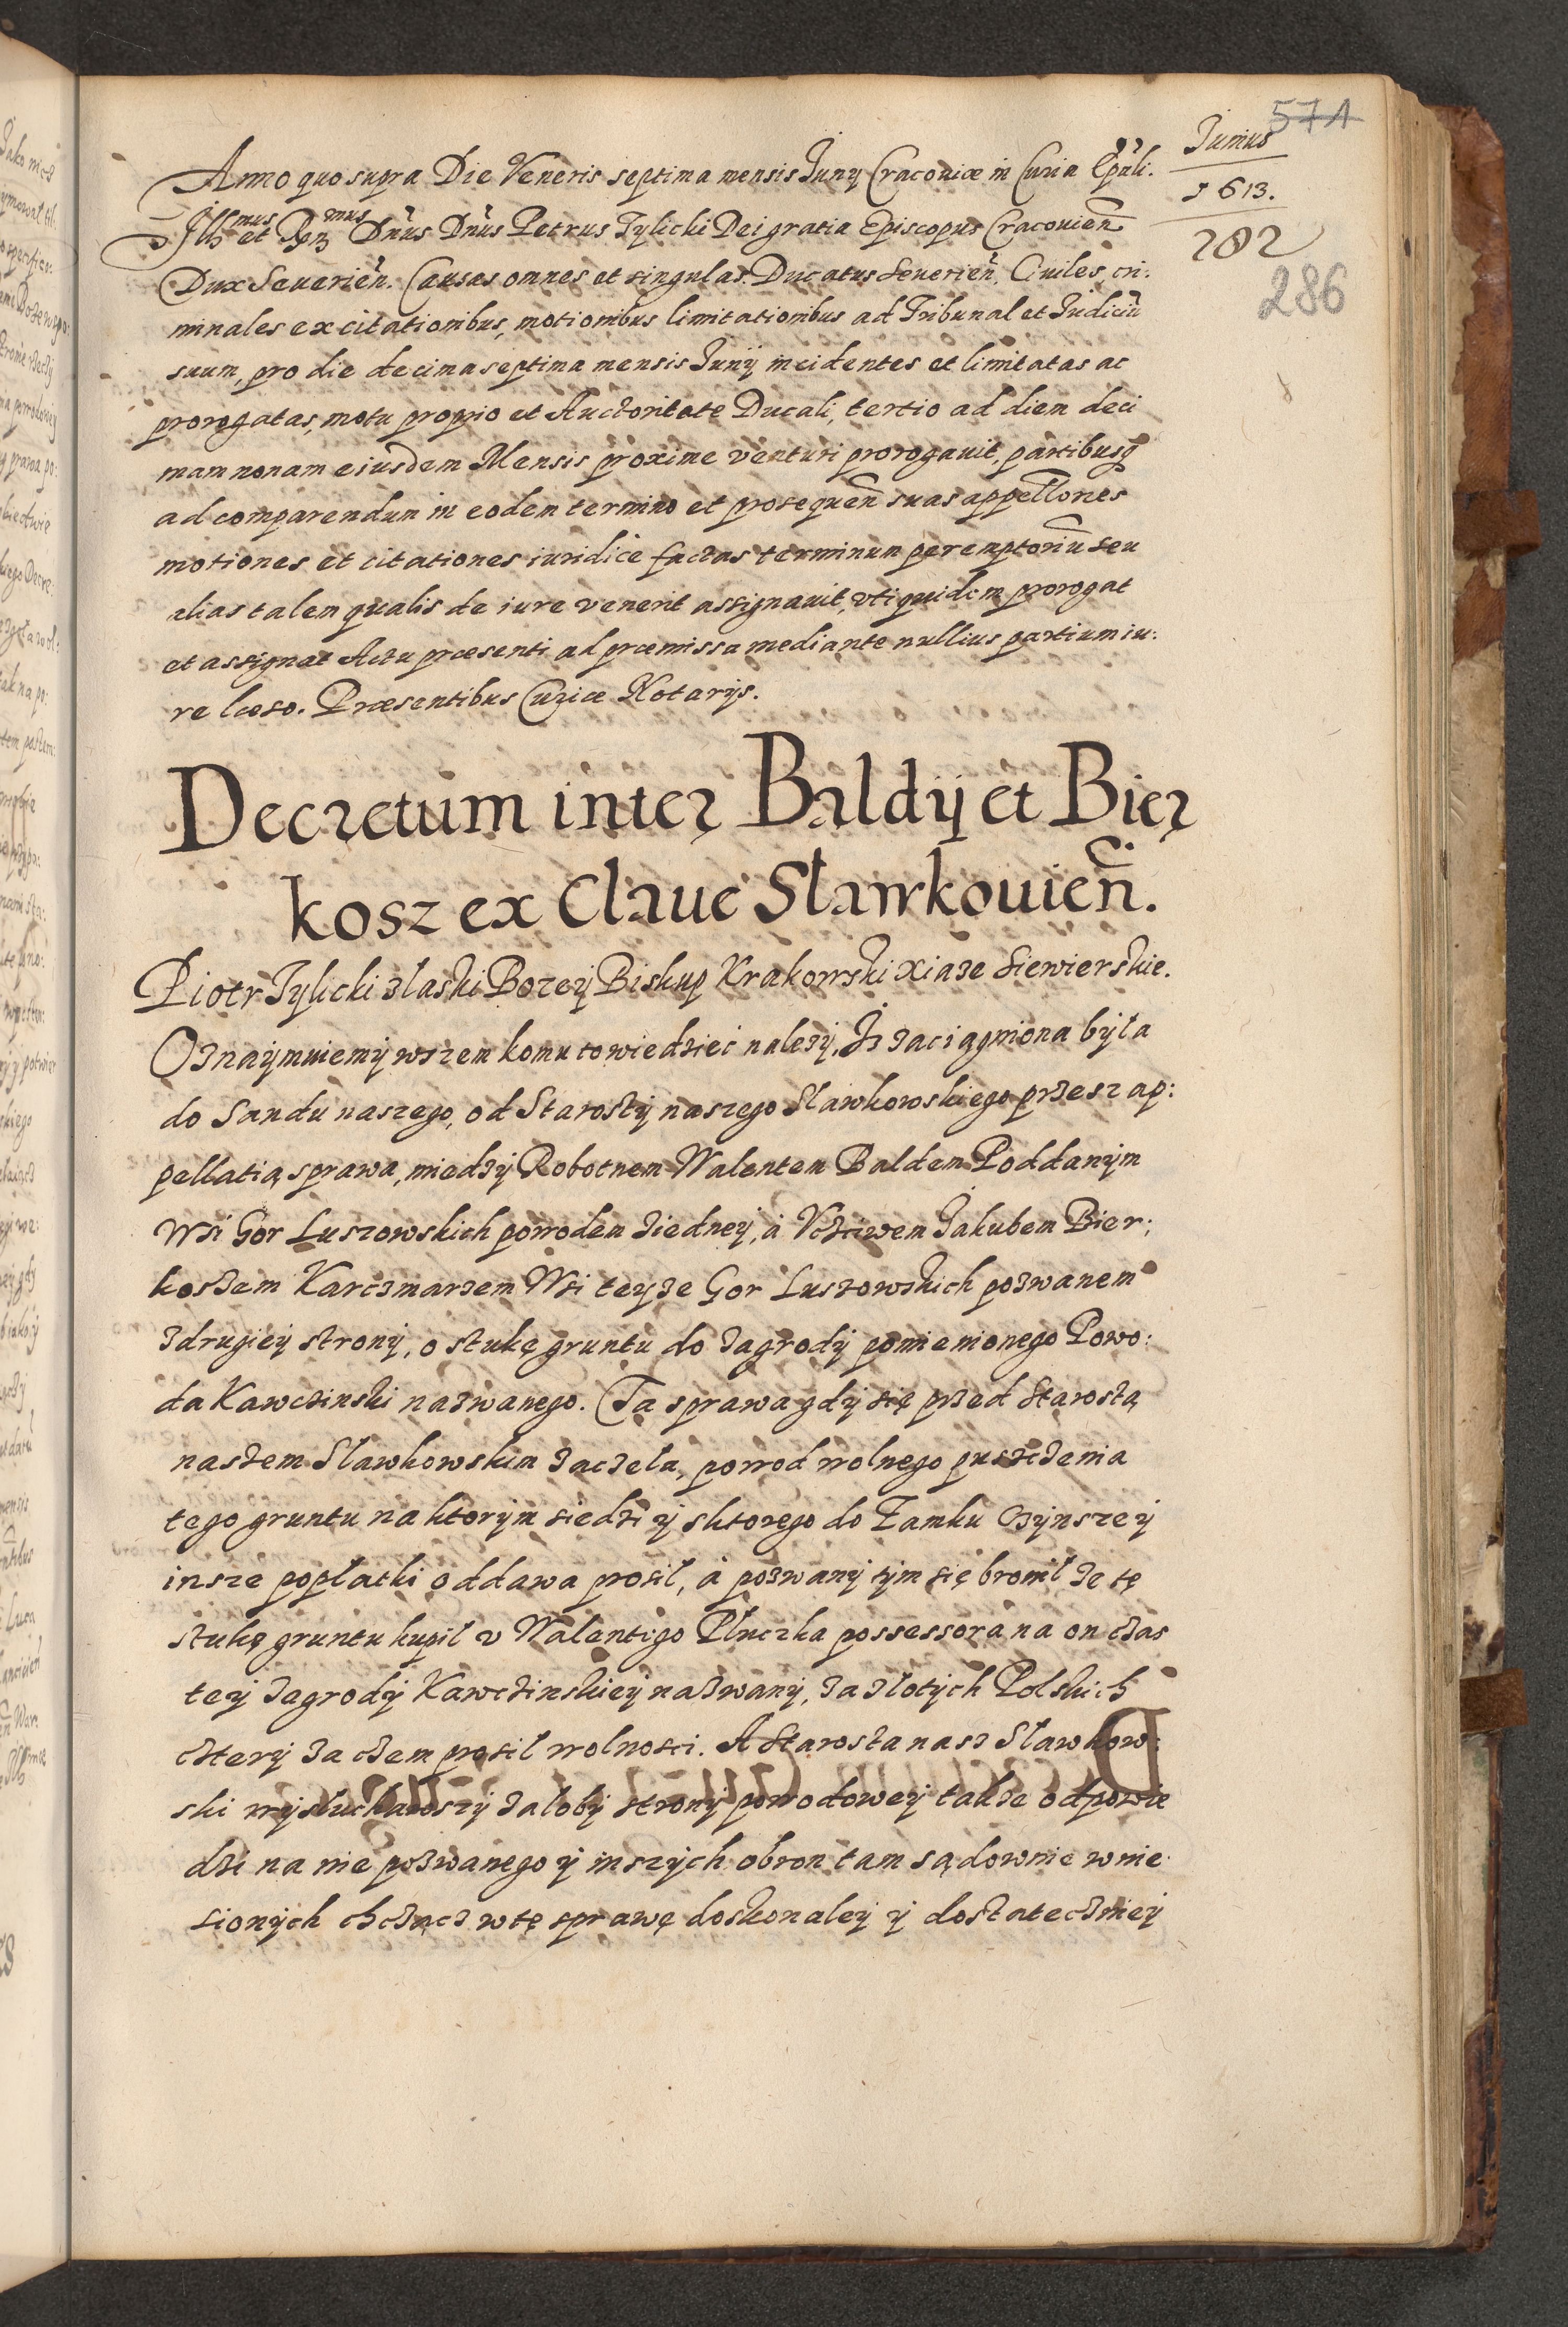 574
Junius
1613.
282
286
Anno quo supra Die Veneris septima mensis Juny Cracouiæ in Curia Epali.
Illmus et Rmus Dnus Dnus Petrus Tylicki Dei gratia Episcopus Cracouien
Dux Seuerien. Causas omnes et singulas Ducatus Seuerien. Ciuiles, cri:
minales ex citationibus, motionibus limitationibus ad Tribunal et Judiciu
suum, pro die decima septima mensis Junij incidentes et limitatas ac
prorogatas, motu proprio et Auctoritate Ducali, tertio ad diem deci
mam nonam eiusdem Mensis proxime venturi prorogauit, partibusq
ad comparendum in eodem termino et prosequen suas appellones
motiones et citationes iuridice factas terminum peremptoriu seu
alias talem qualis de iure venerit assignauit, vti quidem prorogat
et assignat Actu præsenti ad præmissa mediante nullius partium iu:
re læso. Præsentibus Curiæ Notarijs.
Decretum inter Baldij et Bier
kosz ex Claue Sławkouien.
Piotr Tylicki z łaski Bozey Biskup Krakowski Xiaże Siewierskie.
Oznaymuiemy wszem komu to wiedzieć należy, Iż zaciągniona była
do Sandu naszego, od Starosty naszego Sławkowskiego przesz ap:
pellatią sprawa, miedzy Robotnem Walentem Baldem Poddanym
Wsi Gor Luszowskich powodem z iedney, á Vczciwem Jakubem Bier:
koszem Karczmarzem Wsi teyże Gor Luszowskich pozwanem
z drugiey strony, o stukę gruntu do zagrody pomienionego Powo:
da Kawczinski nazwanego. Ta sprawa gdy się przed Starostą
naszem Sławkowskim zaczeła, powod wolnego puszczenia
tego gruntu na ktorym siedzi y sktorego do Zamku czynsze y
insze popłatki oddawa prosił, á pozwany tym się bronił że tę
stukę gruntu kupił v Walentego Płuczka possessora na on czas
tey zagrody Kawczinskiey nazwany, za złotych Polskich
cztery za czem prosił wolności. A Starosta nasz Sławkow:
ski wysłuchawszy załoby strony powodowey także odpowie
dzi na nie pozwanego y inszych obron tam sądownie wnie
sionych chcząc wtę sprawę doskonaley y dostateczniey